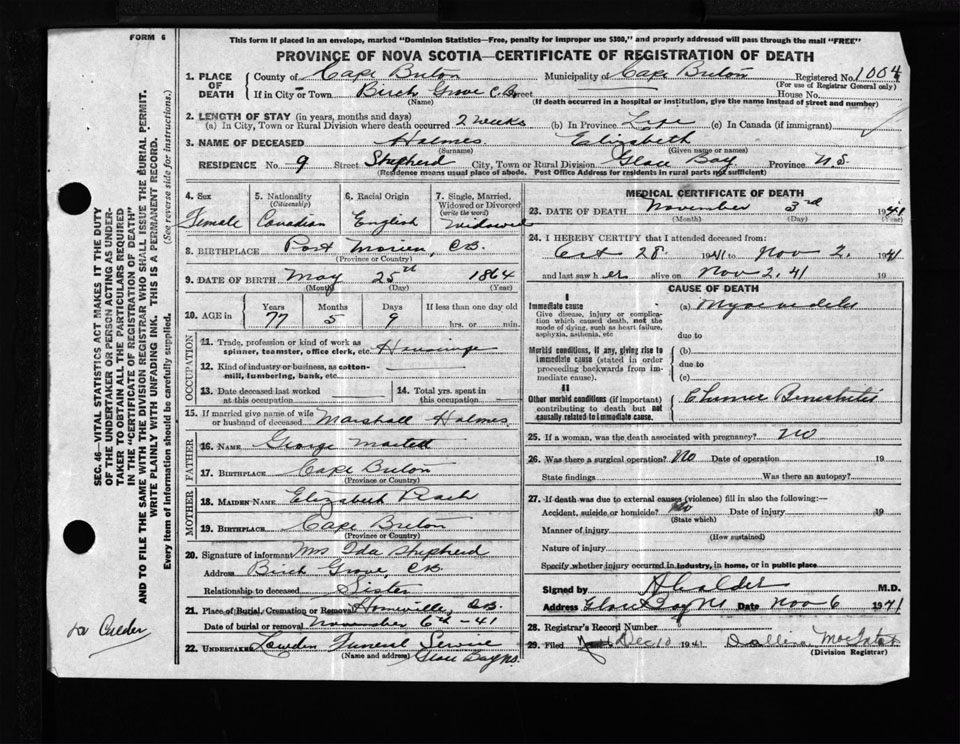 FORM 6
This form if placed in an envelope, marked "Dominion Statistics—Free, penalty for improper use $300," and properly addressed will pass through the mail "FREE"
PROVINCE OF NOVA SCOTIA—CERTIFICATE OF REGISTRATION OF DEATH
1. PLACE OF DEATH
County of Cape Breton Municipality of Cape Breton Registered No. 1004
(For use of Registrar General only)
If in City or Town Birch Grove C.B. Street House No.
(Name) (If death occurred in a hospital or institution, give the name instead of street and number)
2. LENGTH OF STAY (in years, months and days)
(a) In City, Town or Rural Division where death occurred 2 weeks (b) In Province Life (c) In Canada (if immigrant)
3. NAME OF DECEASED Holmes Elizabeth
(Surname) (Given name or names)
RESIDENCE No. 9 Street Shepherd City, Town or Rural Division Glace Bay Province N.S.
(Residence means usual place of abode. Post Office Address for residents in rural parts not sufficient)
4. Sex Female
5. Nationality (Citizenship) Canadian
6. Racial Origin English
7. Single, Married, Widowed or Divorced (write the word) Widowed
8. BIRTHPLACE Port Morien, C.B.
(Province or Country)
9. DATE OF BIRTH May 25th 1864
(Month) (Day) (Year)
10. AGE in Years 77 Months 5 Days 9 If less than one day old hrs. or min.
OCCUPATION
11. Trade, profession or kind of work as spinner, teamster, office clerk, etc.
12. Kind of industry or business, as cotton-mill, lumbering, bank, etc.
13. Date deceased last worked at this occupation
14. Total yrs. spent in this occupation
15. If married give name of wife or husband of deceased Marshall Holmes
FATHER
16. NAME George
17. BIRTHPLACE Cape Breton
(Province or Country)
MOTHER
18. MAIDEN NAME Elizabeth
19. BIRTHPLACE Cape Breton
(Province or Country)
20. Signature of informant Mrs Ida Shepherd
Address Birch Grove, C.B.
Relationship to deceased Sister
21. Place of Burial, Cremation or Removal Homeville, C.B.
Date of burial or removal November 6th - 41
22. UNDERTAKER Funeral Service
(Name and address) Glace Bay N.S.
MEDICAL CERTIFICATE OF DEATH
23. DATE OF DEATH November 3rd 1941
(Month) (Day) (Year)
24. I HEREBY CERTIFY that I attended deceased from:
Oct 28 1941 to Nov 2, 1941
and last saw her alive on Nov 2. 41 19
CAUSE OF DEATH
I
Immediate cause (a)
Give disease, injury or complication which caused death, not the mode of dying, such as heart failure, asphyxia, asthenia, etc
due to
Morbid conditions, if any, giving rise to immediate cause (stated in order proceeding backwards from immediate cause).
(b)
due to
(c)
II
Other morbid conditions (if important) contributing to death but not causally related to immediate cause.
Chronic Bronchitis
25. If a woman, was the death associated with pregnancy? No
26. Was there a surgical operation? No Date of operation 19
State findings Was there an autopsy?
27. If death was due to external causes (violence) fill in also the following:—
Accident, suicide or homicide? No Date of injury 19
(State which)
Manner of injury
(How sustained)
Nature of injury
Specify whether injury occurred in industry, in home, or in public place
Signed by M.D.
Address Glace Bay NS Date Nov 6 1941
28. Registrar's Record Number
29. Filed Dec 10 1941
(Division Registrar)
SEC. 46—VITAL STATISTICS ACT MAKES IT THE DUTY
OF THE UNDERTAKER OR PERSON ACTING AS UNDERTAKER TO OBTAIN ALL THE PARTICULARS REQUIRED
IN THE "CERTIFICATE OF REGISTRATION OF DEATH"
AND TO FILE THE SAME WITH THE DIVISION REGISTRAR WHO SHALL ISSUE THE BURIAL PERMIT.
WRITE PLAINLY WITH UNFADING INK. THIS IS A PERMANENT RECORD.
Every item of information should be carefully supplied. (See reverse side for instructions.)